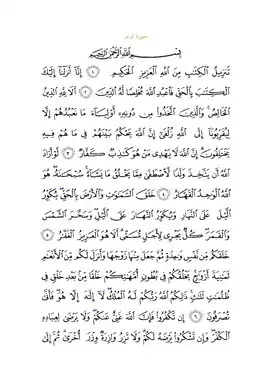 سورة الزمر
بسم الله الرحمن الرحيم
تنزيل الكتب من الله العزيز الحكيم ١ إنا أنزلنا إليك
الكتب بالحق فاعبد الله مخلصا له الدين ٢ ألا لله الدين
الخالص والذين اتخذوا من دونه أولياء ما نعبدهم إلا
ليقربونا إلى الله زلفى إن الله يحكم بينهم في ما هم فيه
يختلفون إن الله لا يهدي من هو كذب كفار ٣ لو أراد
الله أن يتخذ ولدا لاصطفى مما يخلق ما يشاء سبحنه هو
الله الوحد القهار ٤ خلق السموت والأرض بالحق يكور
اليل على النهار ويكور النهار على اليل وسخر الشمس
والقمر كل يجري لأجل مسمى ألا هو العزيز الغفر ٥
خلقكم من نفس وحدة ثم جعل منها زوجها وأنزل لكم من الأنعم
ثمنية أزوج يخلقكم في بطون أمهتكم خلقا من بعد خلق في
ظلمت ثلث ذلكم الله ربكم له الملك لا إله إلا هو فأنى
تصرفون ٦ إن تكفروا فإن الله غني عنكم ولا يرضى لعباده
الكفر وإن تشكروا يرضه لكم ولا تزر وازرة وزر أخرى ثم إلى